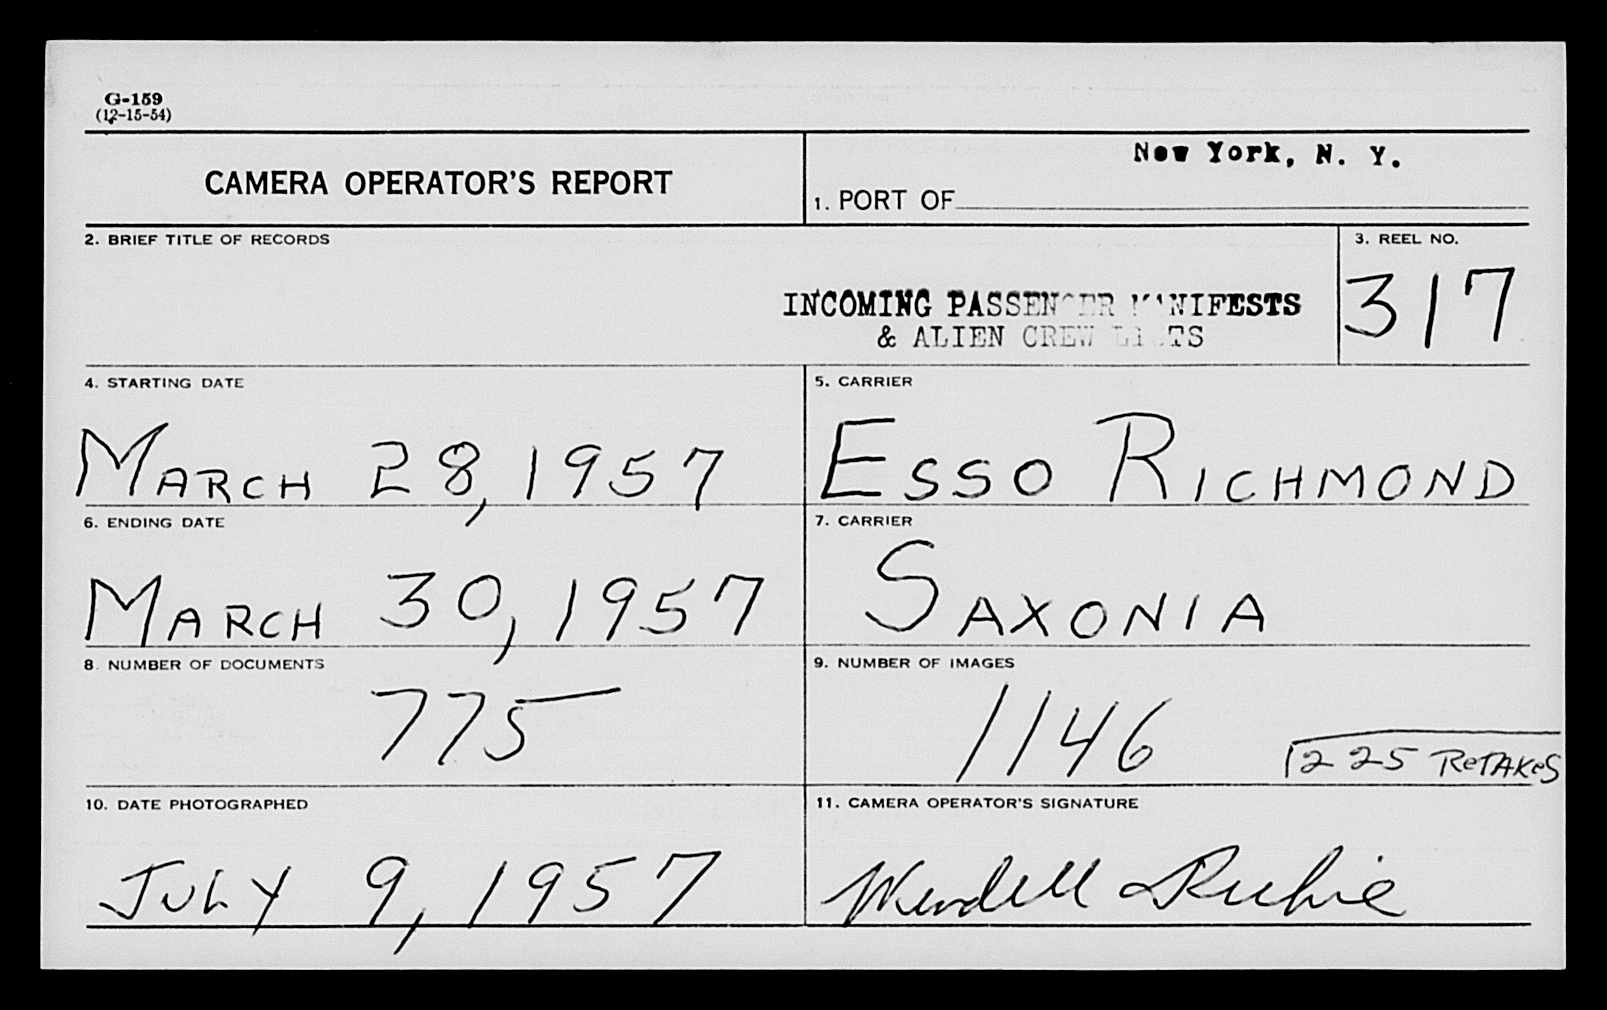 G-159
(12-15-54)
CAMERA OPERATOR'S REPORT
New York, N. Y.
1. PORT OF
2. BRIEF TITLE OF RECORDS
INCOMING PASSENGER MANIFESTS
& ALIEN CREW LISTS
3. REEL NO.
317
4. STARTING DATE
MARCH 28, 1957
5. CARRIER
ESSO RICHMOND
6. ENDING DATE
MARCH 30, 1957
7. CARRIER
SAXONIA
8. NUMBER OF DOCUMENTS
775
9. NUMBER OF IMAGES
1146
225 RETAKES
10. DATE PHOTOGRAPHED
JULY 9, 1957
11. CAMERA OPERATOR'S SIGNATURE
Wendell